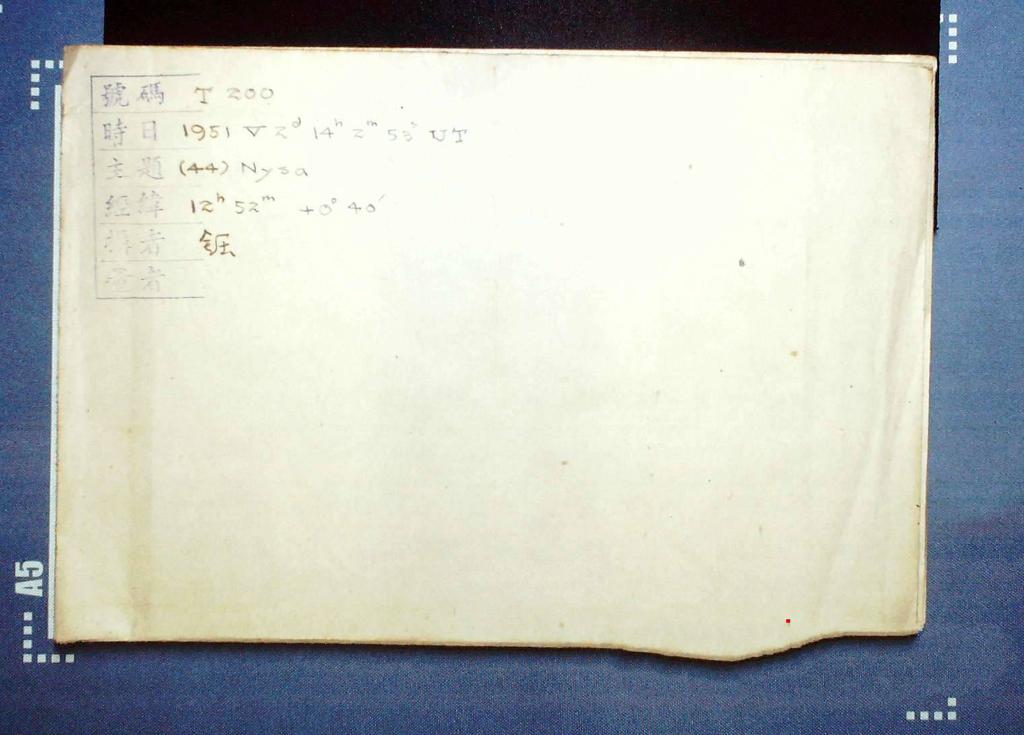 號碼 T 200
時日 1951 V 2d 14h 2m 53s UT
主題 (44) Nysa
經緯 12h 52m +0° 40′
攝者
者
A5